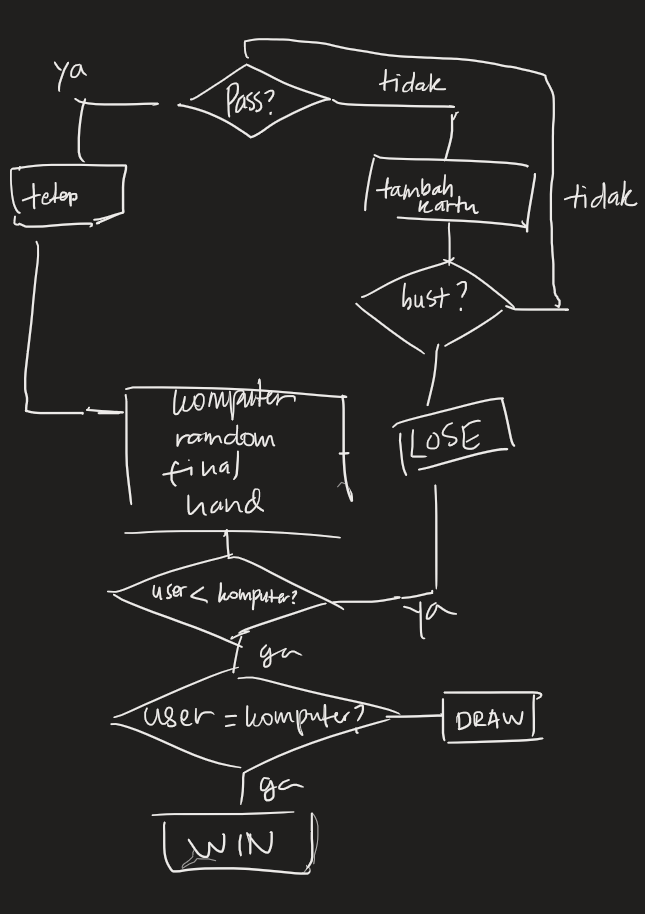 ya
Pass?
tidak
tetap
tambah
kartu
tidak
bust?
LOSE
komputer
ramdom
final
hand
user < komputer?
ya
ga
user = komputer?
DRAW
ga
WIN